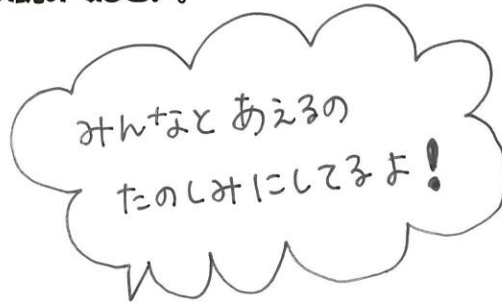 みんなと あえるの
たのしみにしてるよ!